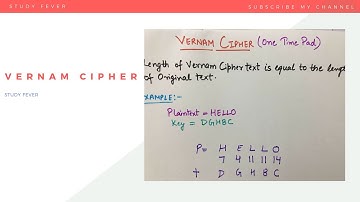 STUDY FEVER
SUBSCRIBE MY CHANNEL
VERNAM CIPHER
STUDY FEVER
VERNAM CIPHER (One Time Pad)
Length of Vernam Cipher text is equal to the leng
of Original text.
EXAMPLE:-
Plaintext = HELLO
Key = DGHBC
P= H E L L O
7 4 11 11 14
+ D G H B C